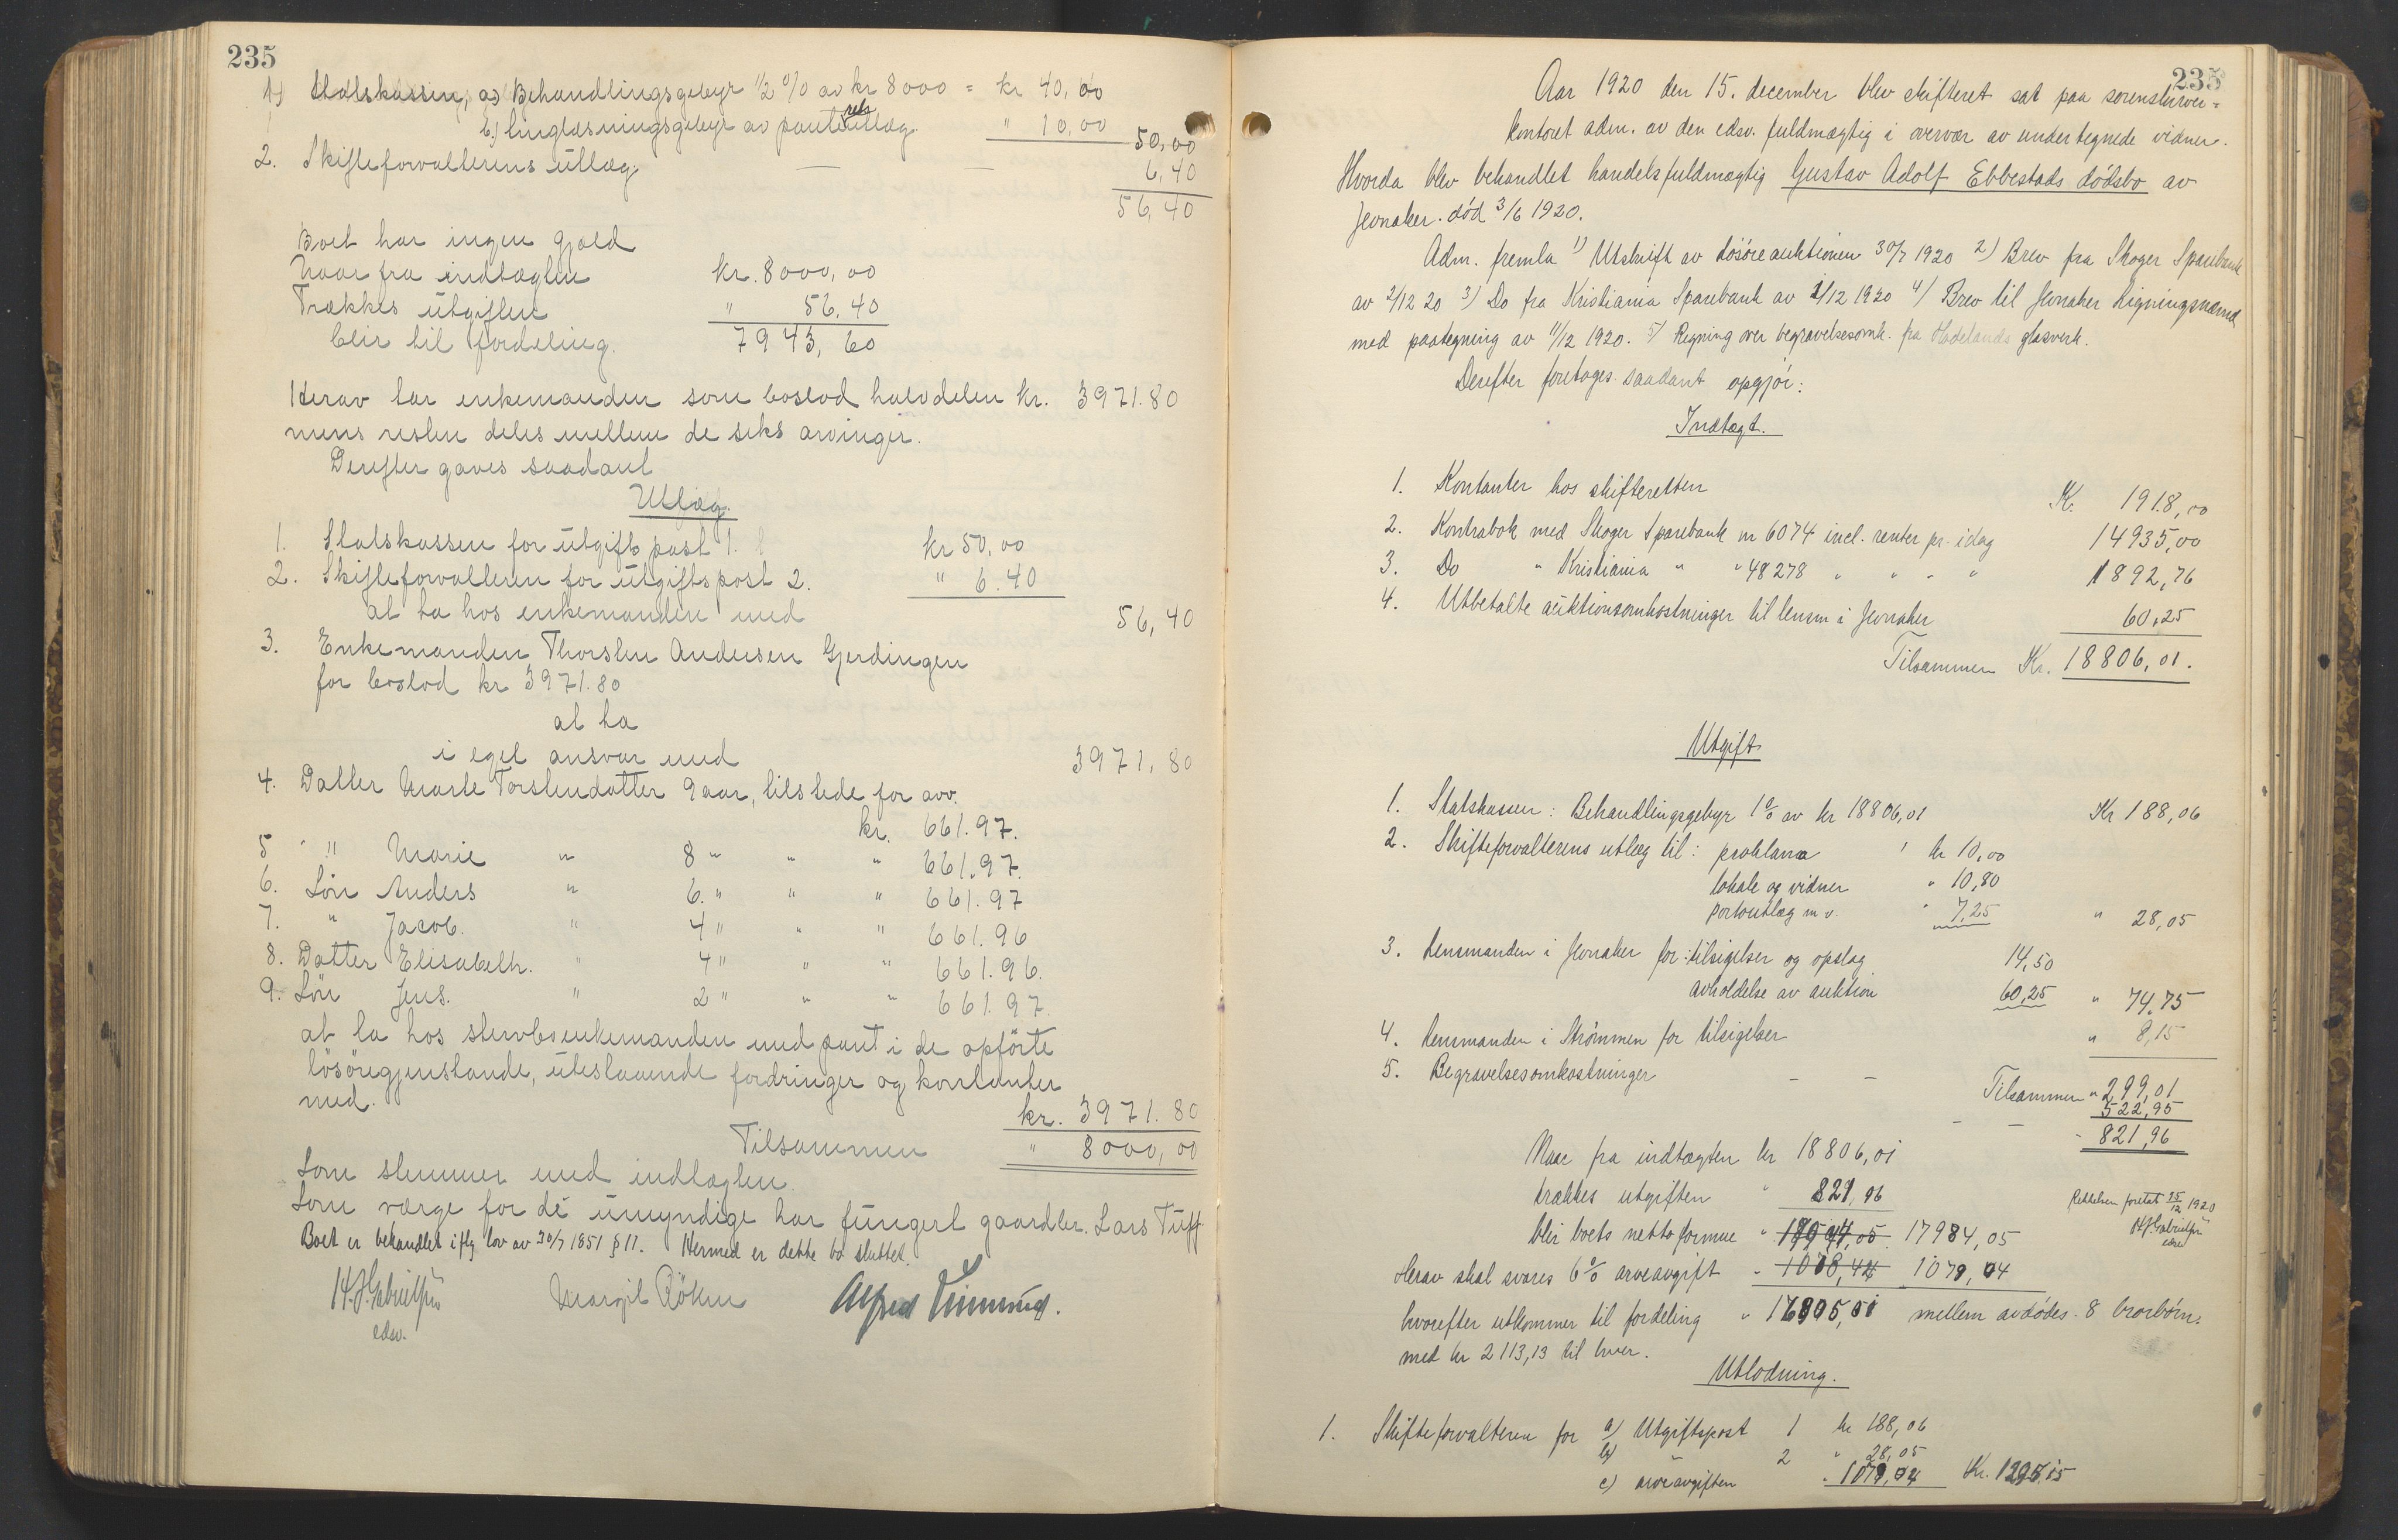 235
1) Statskassen, a) Behandlingsgebyr 1/2 % av kr 8000 = kr 40,00
b) tinglæsningsgebyr av pantutlæg " 10,00 50,00
2. Skifteforvalterens utlæg — — 6,40
56,40
Boet har ingen gjæld
Naar fra indtægten kr. 8000,00
Trækkes utgiften " 56,40
blir til fordeling. 7943,60
Herav tar enkemanden som boslod halvdelen kr. 3971.80
mens resten deles mellem de seks arvinger.
Derefter gaves saadant
Utlæg.
1. Statskassen for utgifts post 1. kr 50,00
2. Skifteforvalteren for utgiftspost 2. " 6.40
at ta hos enkemanden med 56,40
3. Enkemanden Thorsten Andersen Gjerdingen
for boslod kr 3971.80
at ta
i eget ansvar med 3971,80
4. Datter Marte Torstendatter 9 aar, tilstede for arv.
kr. 661.97.
5 " " Marie " 8 " " " 661.97.
6. Søn Anders " 6. " " " 661.97
7. " Jacob. " 4 " " " 661.96
8. Datter Elisabeth. " 4 " " " 661.96.
9. Søn Jens. " 2 " " " 661.97.
at ta hos stervboenkemanden med pant i de opførte
løsøregjenstande, utestaaende fordringer og kontanter
med. kr. 3971.80
Tilsammen " 8000,00
Som stemmer med indtægten.
Som værge for de umyndige har fungert gaardbr. Lars Tuff
Boet er behandlet iflg lov av 30/7 1851 § 11. Hermed er dette bo sluttet.
H. J. Gabrielsen Margit Röken Alfred
edsv.
235
Aar 1920 den 15. december blev skifteret sat paa sorenskriver=
kontoret adm. av den edsv. fuldmægtig i overvær av undertegnede vidner.
Hvorda blev behandlet handelsfuldmægtig Gustav Adolf Ebbestads dødsbo av
Jevnaker. død 3/6 1920.
Adm. fremla 1) Utskrift av løsøreauktionen 30/7 1920 2) Brev fra Skoger Sparebank
av 2/12 20 3) Do fra Kristiania Sparebank av 1/12 1920 4) Brev til Jevnaker Ligningsnævnd
med paategning av 11/12 1920. 5) Regning over begravelsesomk. fra Hadelands glasverk.
Derefter foretages saadant opgjør:
Indtægt.
1. Kontanter hos skifteretten Kr. 1918,00
2. Kontrabok med Skoger Sparebank nr 6074 incl. renter pr. idag 14935,00
3. Do " Kristiania " " 48278 " " " " 1892,76
4. Utbetalte auktionsomkostninger til lensm i Jevnaker 60,25
Tilsammen Kr. 18806,01.
Utgift
1. Statskassen: Behandlingsgebyr 1 % av kr 18806,01 Kr 188,06
2. Skifteforvalterens utlæg til: proklama kr 10,00
lokale og vidner " 10,80
portoutlæg m v. " 7,25 " 28,05
3. Lensmanden i Jevnaker for: tilsigelser og opslag 14,50
avholdelse av auktion 60,25 " 74,75
4. Lensmanden i Strømmen for tilsigelser " 8,15
5. Begravelsesomkostninger — — Tilsammen " 299,01
— — 522,95
" 821,96
Naar fra indtægten kr 18806,01
trækkes utgiften " 821,96
blir boets netto formue " 17984,05
Rettelsen foretat 15/12 1920
H. J. Gabrielsen
edsv
Herav skal svares 6 % arveavgift " 1078,44 1079,04
hvorefter utkommer til fordeling " 16905,01 mellem avdødes 8 brorbørn.
med kr 2113,13 til hver.
Utlodning.
1. Skifteforvalteren for a) Utgiftspost 1 kr 188,06
b) " 2 " 28,05
c) arveavgiften " 1079,04 Kr. 1295,15